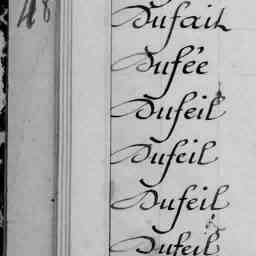 48
Dufail
Dufée
Dufeil
Dufeil
Dufeil
Dufeil